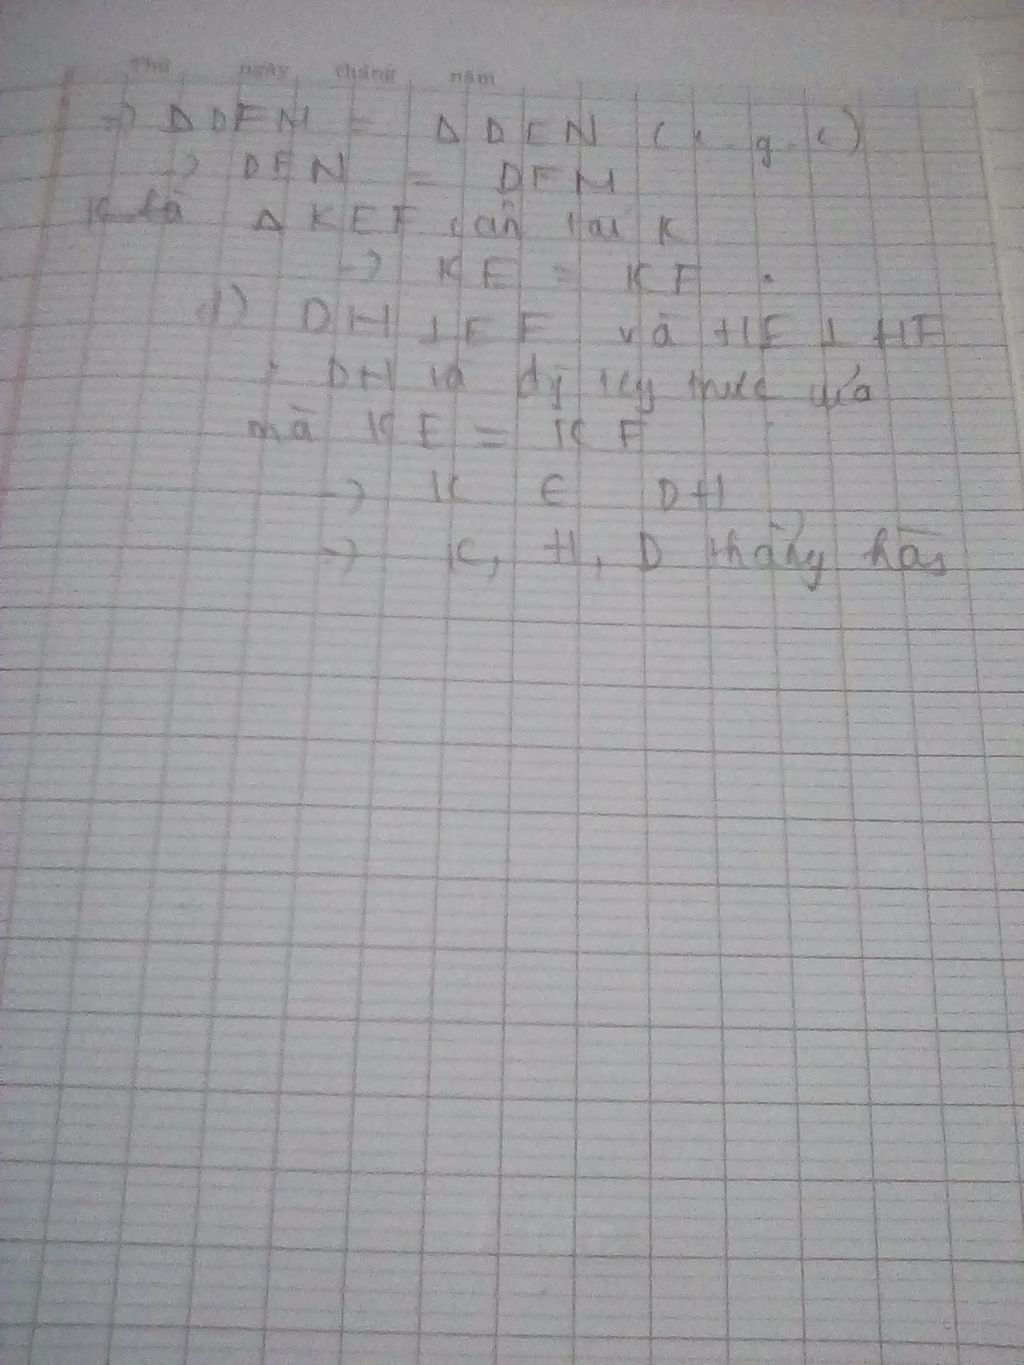 Thứ ngày tháng năm
=> Δ DFN = Δ DEN (c.g.c)
=> DFN = DFN
K là Δ KEF cân tại K
-> KE = KF .
d) DH ⊥ EF và HE ⊥ HF
DH là trực
mà KE = KF
-> K ∈ DH
-> K, H, D thẳng hàng